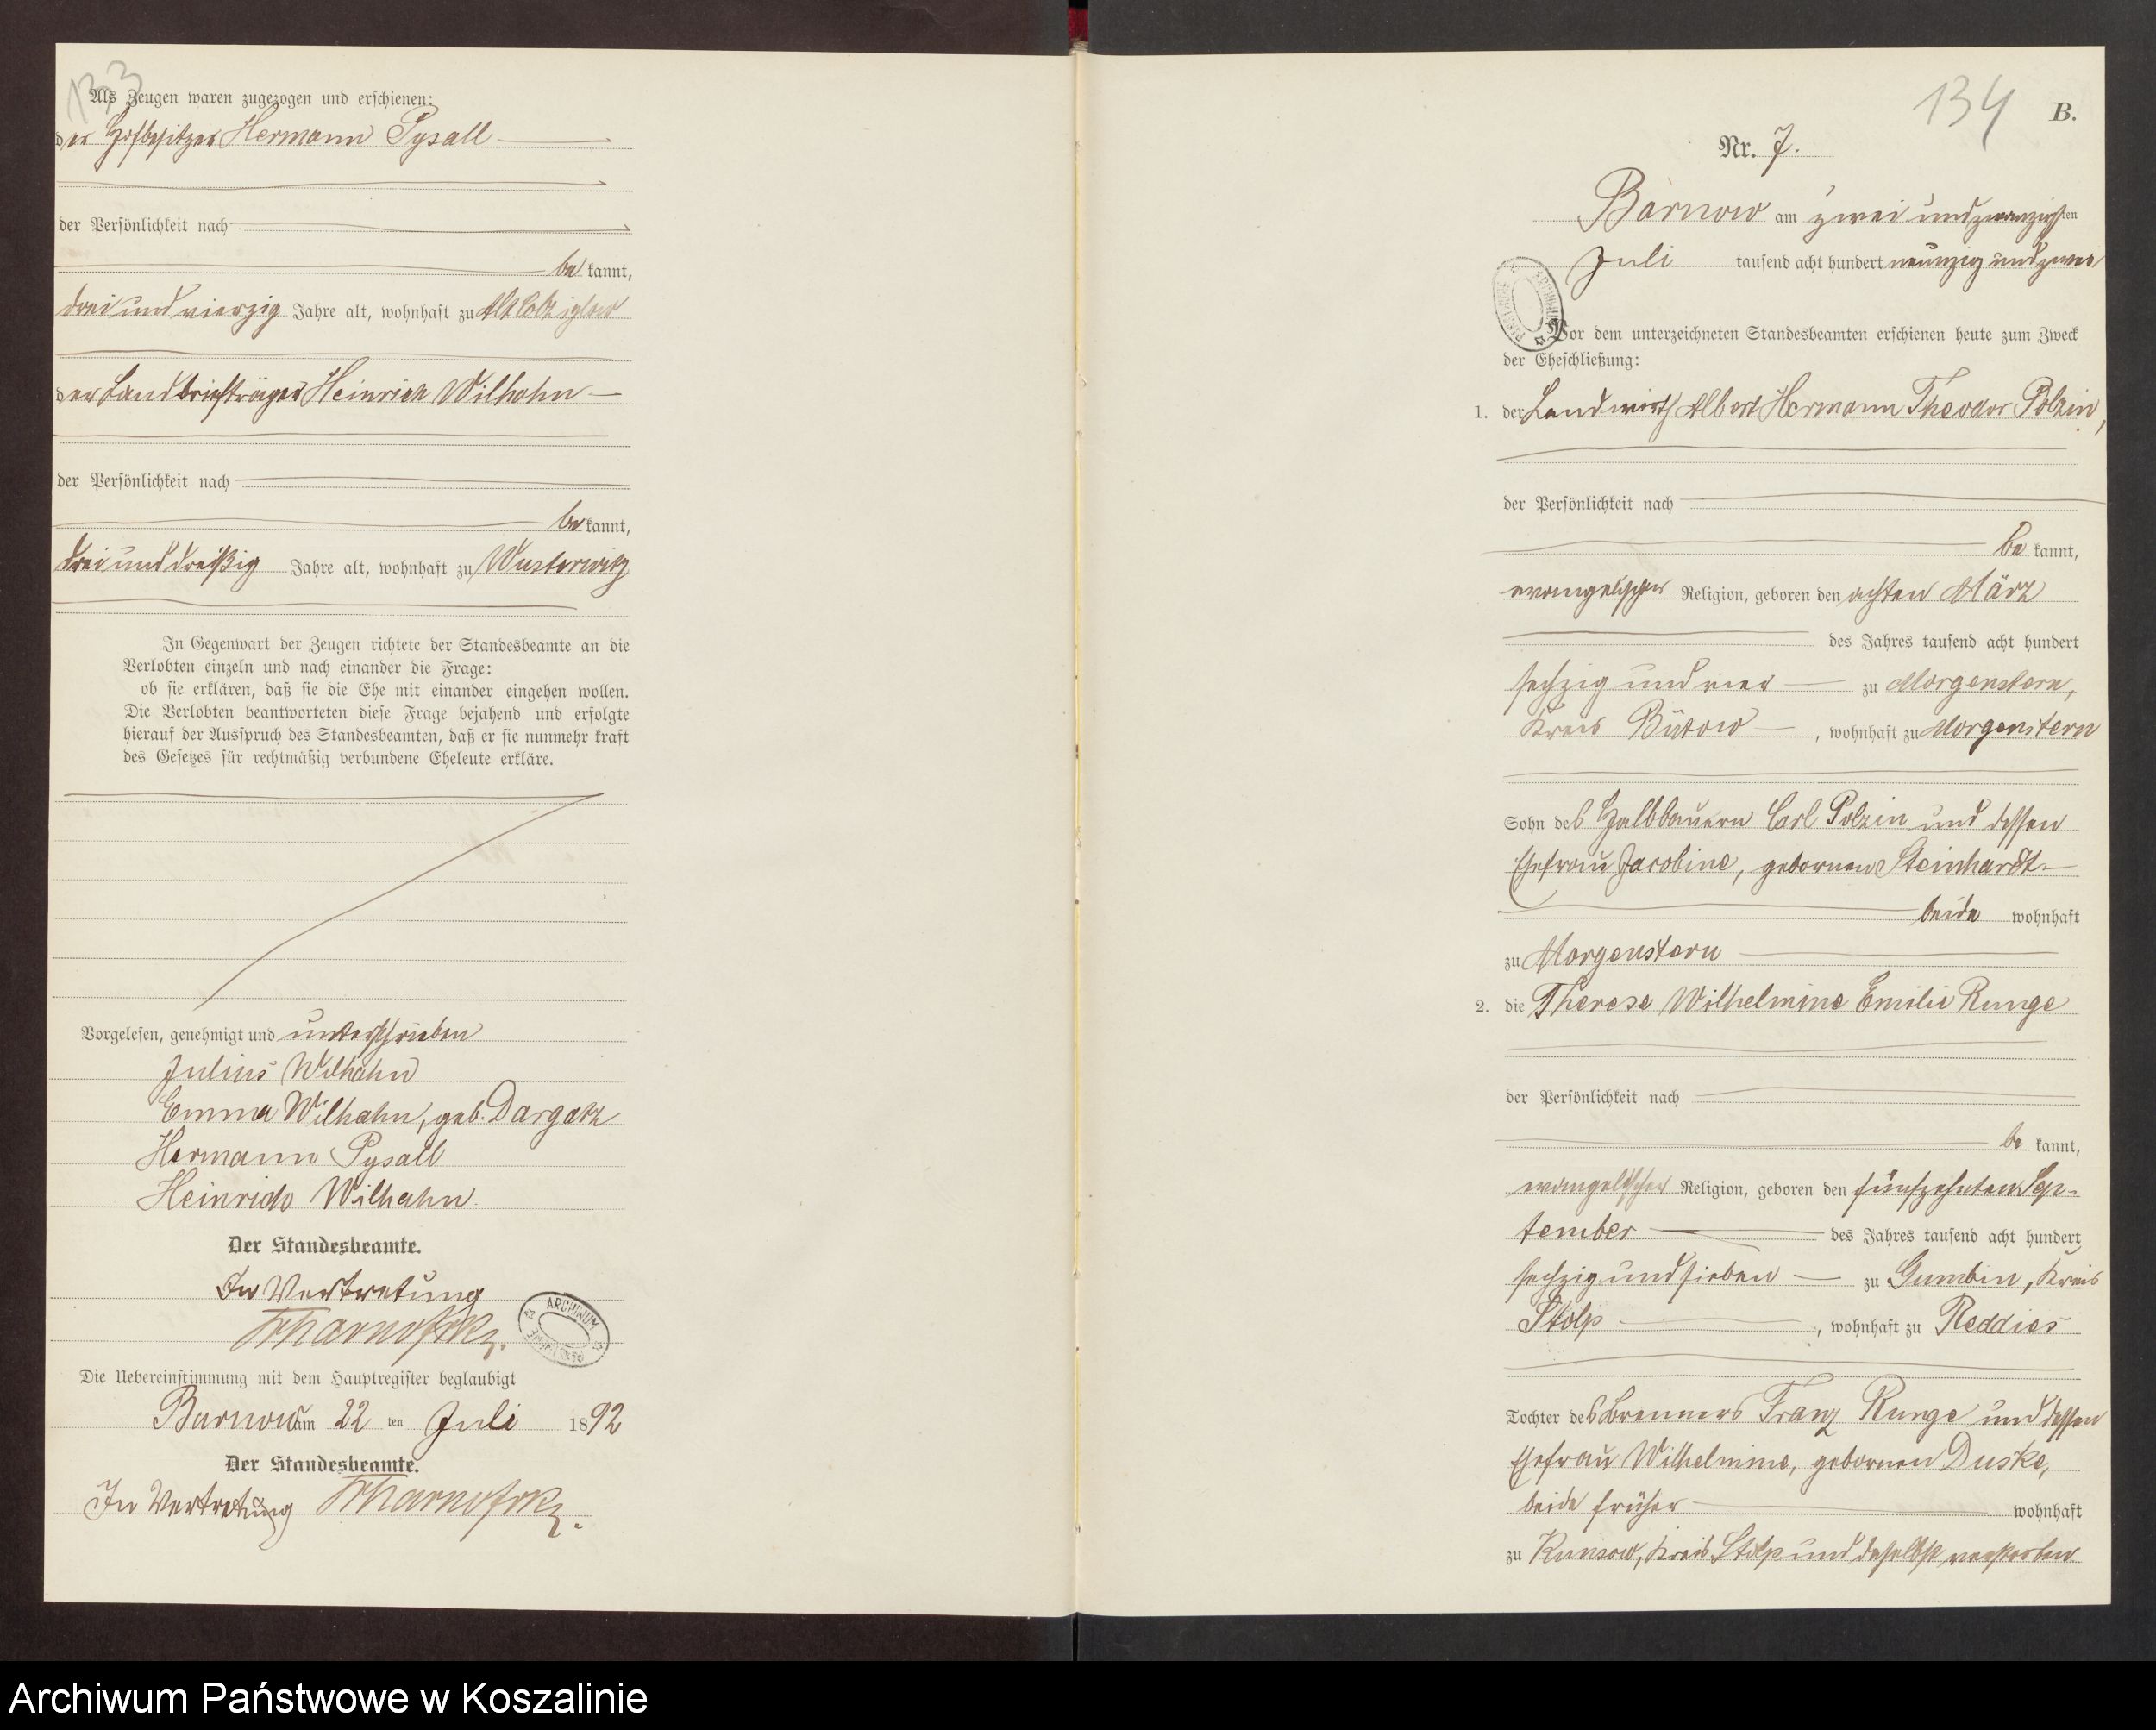 133
Als Zeugen waren zugezogen und erschienen:
der Hofbesitzer Hermann Pysall
der Persönlichkeit nach
bekannt,
drei und vierzig Jahre alt, wohnhaft zu Alt Colziglow
der Landbriefträger Heinrich Wilhahn
der Persönlichkeit nach
bekannt,
drei und dreißig Jahre alt, wohnhaft zu Wusterwitz
In Gegenwart der Zeugen richtete der Standesbeamte an die
Verlobten einzeln und nach einander die Frage:
ob sie erklären, daß sie die Ehe mit einander eingehen wollen.
Die Verlobten beantworteten diese Frage bejahend und erfolgte
hierauf der Ausspruch des Standesbeamten, daß er sie nunmehr kraft
des Gesetzes für rechtmäßig verbundene Eheleute erkläre.
Vorgelesen, genehmigt und unterschrieben
Julius Wilhahn
Emma Wilhahn, geb. Dargatz
Hermann Pysall
Heinrich Wilhahn.
Der Standesbeamte.
In Vertretung
ARCHIWUM
Die Uebereinstimmung mit dem Hauptregister beglaubigt
Barnow am 22 ten Juli 1892
Der Standesbeamte.
In Vertretung
134
B.
Nr. 7.
Barnow am zwei und zwanzigsten
Juli tausend acht hundert neunzig und zwei
ARCHIWUM PAŃSTWOWE
Vor dem unterzeichneten Standesbeamten erschienen heute zum Zweck
der Eheschließung:
1. der Landwirth Albert Hermann Theodor Polzin,
der Persönlichkeit nach
bekannt,
evangelischer Religion, geboren den achten März
des Jahres tausend acht hundert
sechzig und vier zu Morgenstern,
Kreis Bütow, wohnhaft zu Morgenstern
Sohn des Halbbauern Carl Polzin und dessen
Ehefrau Jacobine, gebornen Steinhardt
beide wohnhaft
zu Morgenstern
2. die Therese Wilhelmine Emilie Runge
der Persönlichkeit nach
bekannt,
evangelischer Religion, geboren den fünfzehnten Sep-
tember des Jahres tausend acht hundert
sechzig und sieben zu Gumbin, Kreis
Stolp, wohnhaft zu Reddies
Tochter des Brenners Franz Runge und dessen
Ehefrau Wilhelmine, gebornen Duske,
beide früher wohnhaft
zu Kunsow, Kreis Stolp und daselbst verstorben
Archiwum Państwowe w Koszalinie